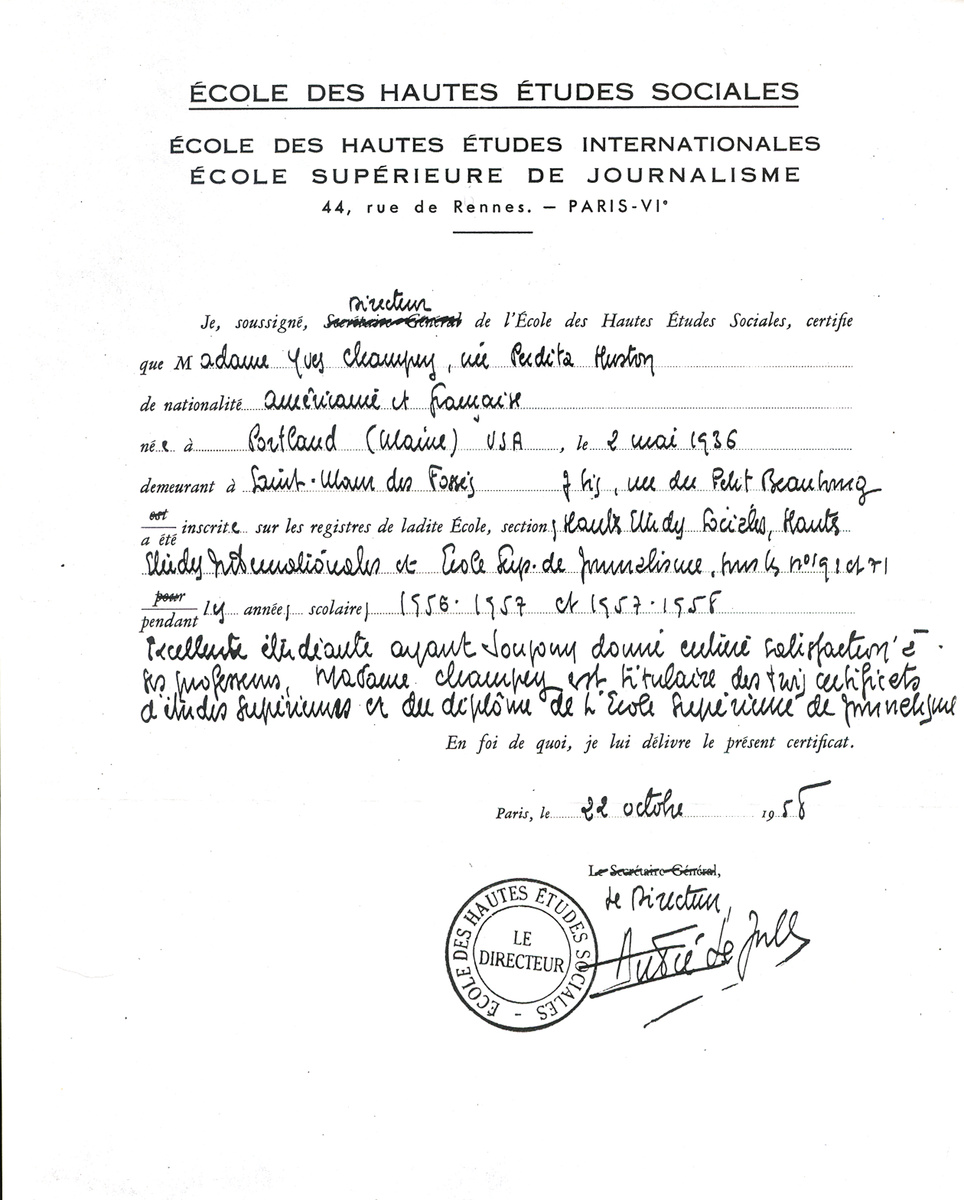 ÉCOLE DES HAUTES ÉTUDES SOCIALES
ÉCOLE DES HAUTES ÉTUDES INTERNATIONALES
ÉCOLE SUPÉRIEURE DE JOURNALISME
44, rue de Rennes. — PARIS-VI°
Directeur
Je, soussigné, Secrétaire Général de l'École des Hautes Études Sociales, certifie
que Madame Yves Champey, née Perdita Huston
de nationalité américaine et française
née à Portland (Maine) USA, le 2 mai 1936
demeurant à Saint-Maur des Fossés 7 bis, rue du Petit Beaubourg
est
a été inscrite sur les registres de ladite École, sections Hautes Etudes Sociales, Hautes
Etudes Internationales et Ecole Sup. de Journalisme, sous les nos 191 et 71
pour
pendant les années scolaires 1956-1957 et 1957-1958
Excellente étudiante ayant toujours donné entière satisfaction à
ses professeurs, Madame Champey est titulaire des trois certificats
d'études supérieures et du diplôme de l'Ecole Supérieure de Journalisme
En foi de quoi, je lui délivre le présent certificat.
Paris, le 22 octobre 1958
Le Secrétaire Général,
Le Directeur,
ÉCOLE DES HAUTES ÉTUDES SOCIALES -
LE
DIRECTEUR